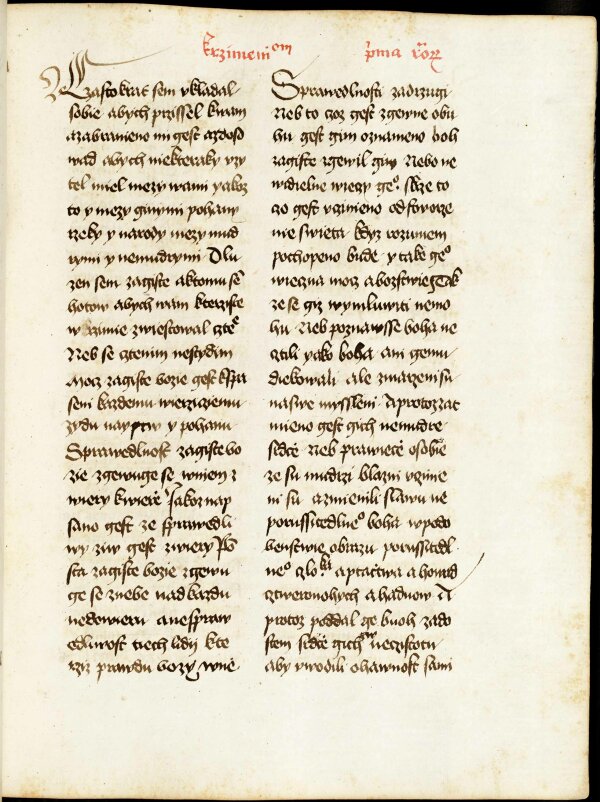 krzimeniom prma
czastokrat sem vkladal
sobie abych przissel kwam
azabranieno mi gest azdoso
wad abych niekteraky vzy
tek miel mezy wami yakoz
to y mezy ginymi pohany
rzeky y narody mezy mud
rymi y nemudrymi Dlu
zen sem zagiste aktomu se
hotow abych wam kterziste
w rzimie zwiestowal cztē
Neb se cztenim nestydim
Mocz zagiste bozie gest kspa
seni kazdemu wierziciemu
zydu nayprw y pohanu
Sprawedlnost zagiste bo
zie zgewuge se wniem z
wiery kwierē Jakoz nap
sano gest ze sprawedli
wy ziw gest zwiery Po
sta zagiste bozie zgewu
ge se znebe nad kazdu
nedowieru anesprawe
edlnost tiech lidij kte
rziz prawdu bozy wne
Sprawedlnosti zadrzugi
Neb to czoz gest zgewne obu
hu gest gim oznameno boh
zagiste zgewil gim Nebo ne
widielne wieczy geº skrze to
czo gest vczinieno od stworze
nie swieta kdyz rozumem
pochopeno bude y take geº
wieczna mocz abozstwie tak
ze se giz wymluwiti nemo
hu Neb poznawsse boha ne
cztili yako boha ani gemu
diekowali ale zmarzeni su
naswe myssleni Aprotozzat
mieno gest gich nemudre
sdcē Neb prawiecē osobie
ze su mudrzi blazni vczine
ni su azmienili slawu ne
porussitedlneº boha wpodo
benstwie obrazu porussitedl
neº czloka aptactwa ahowad
cztweronohych ahaduow A
protoz poddal ge buoh zado
stem sdcē gich wneczistotu
aby vwodili ohawnost sami